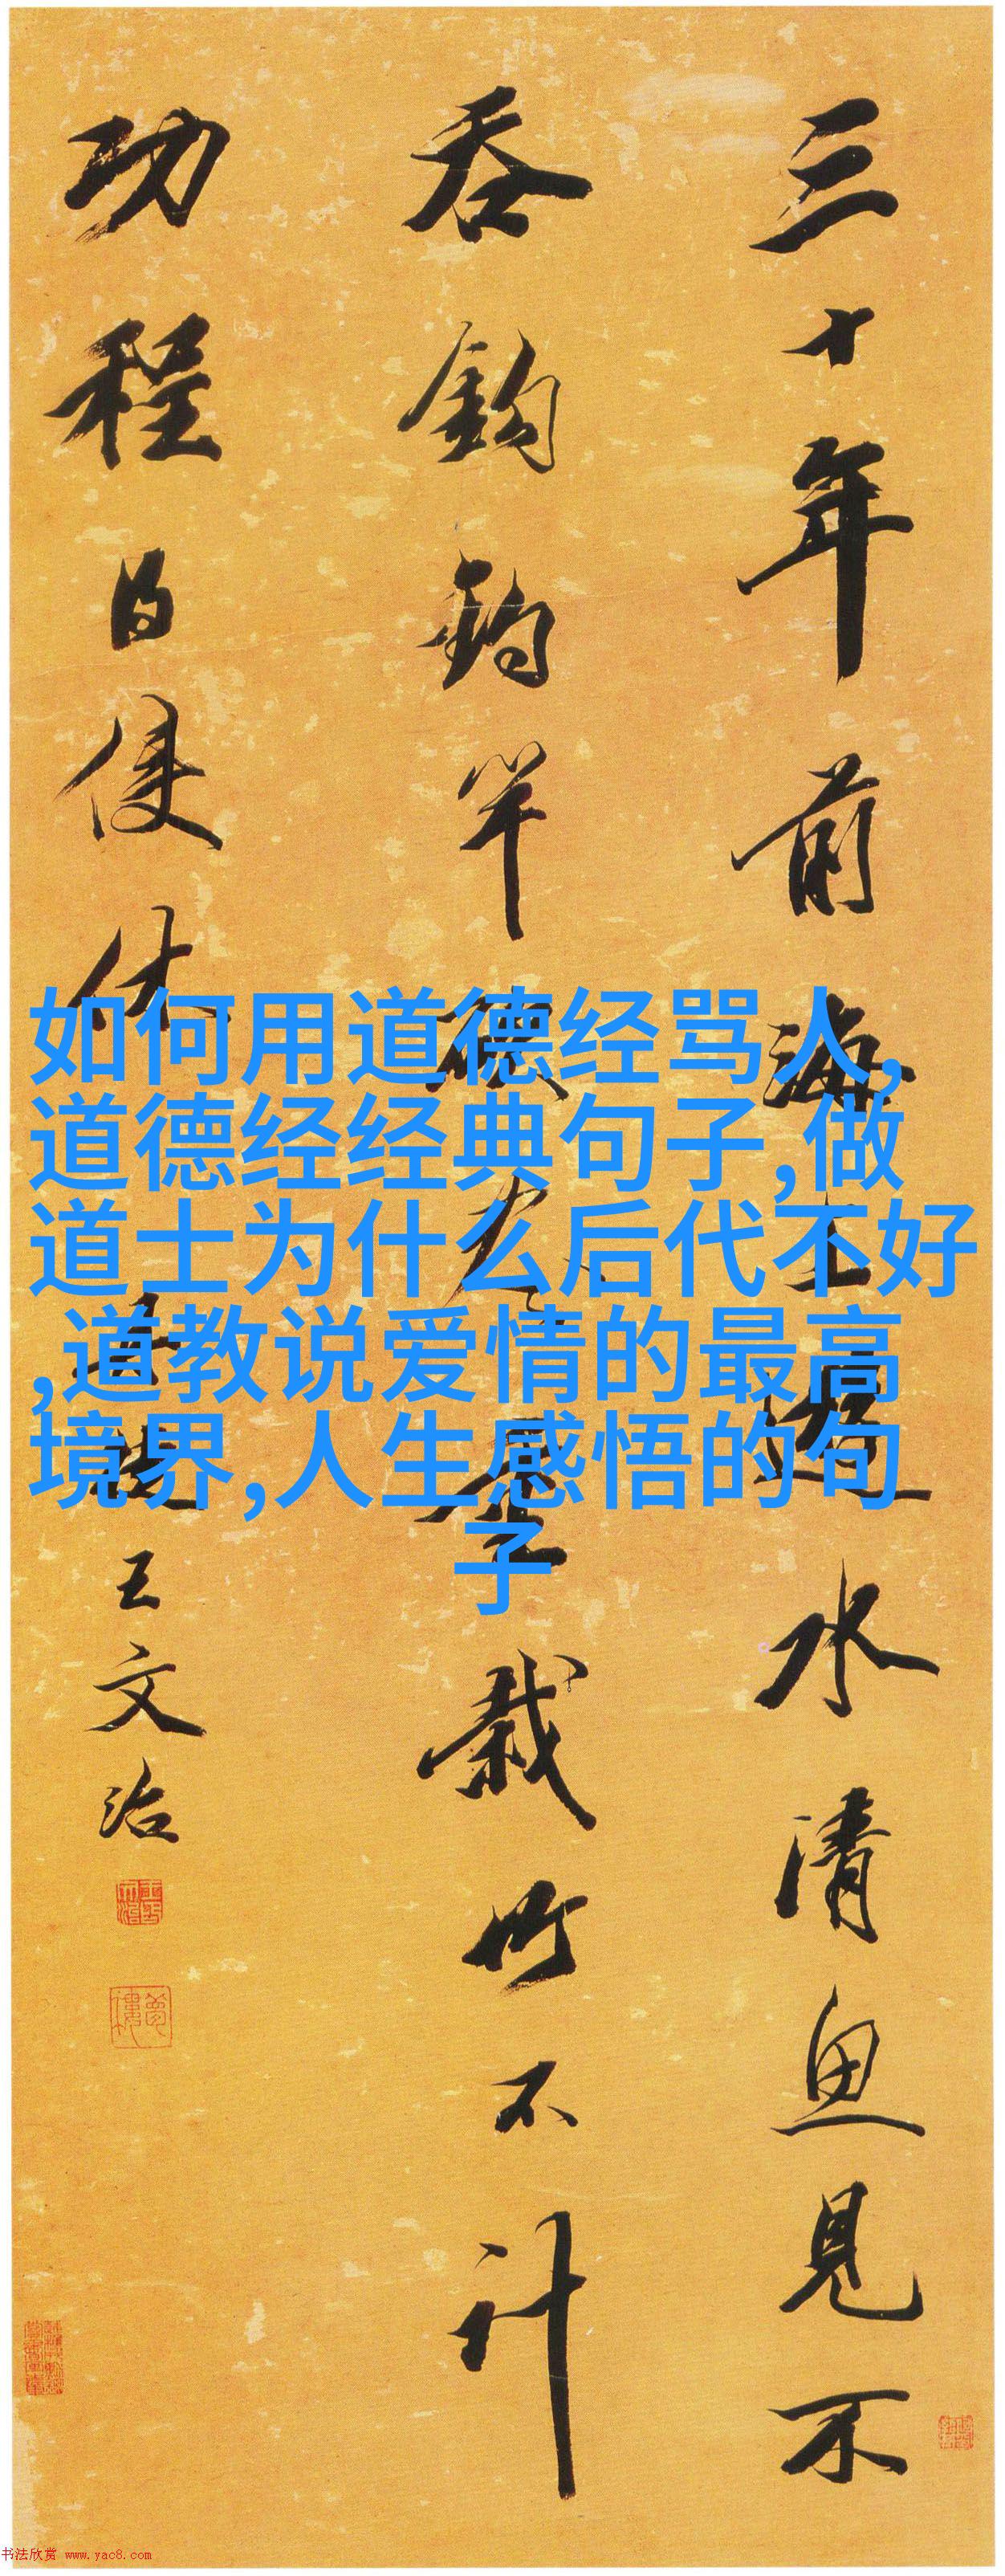 三十年前海上遊水清魚見不
吞鈎釣竿斫盡重栽竹不計
功程得便休
王文治
如何用道德经骂人,
道德经经典句子,做
道士为什么后代不好
,道教说爱情的最高
境界,人生感悟的句
子
书法欣赏 www.yac8.com